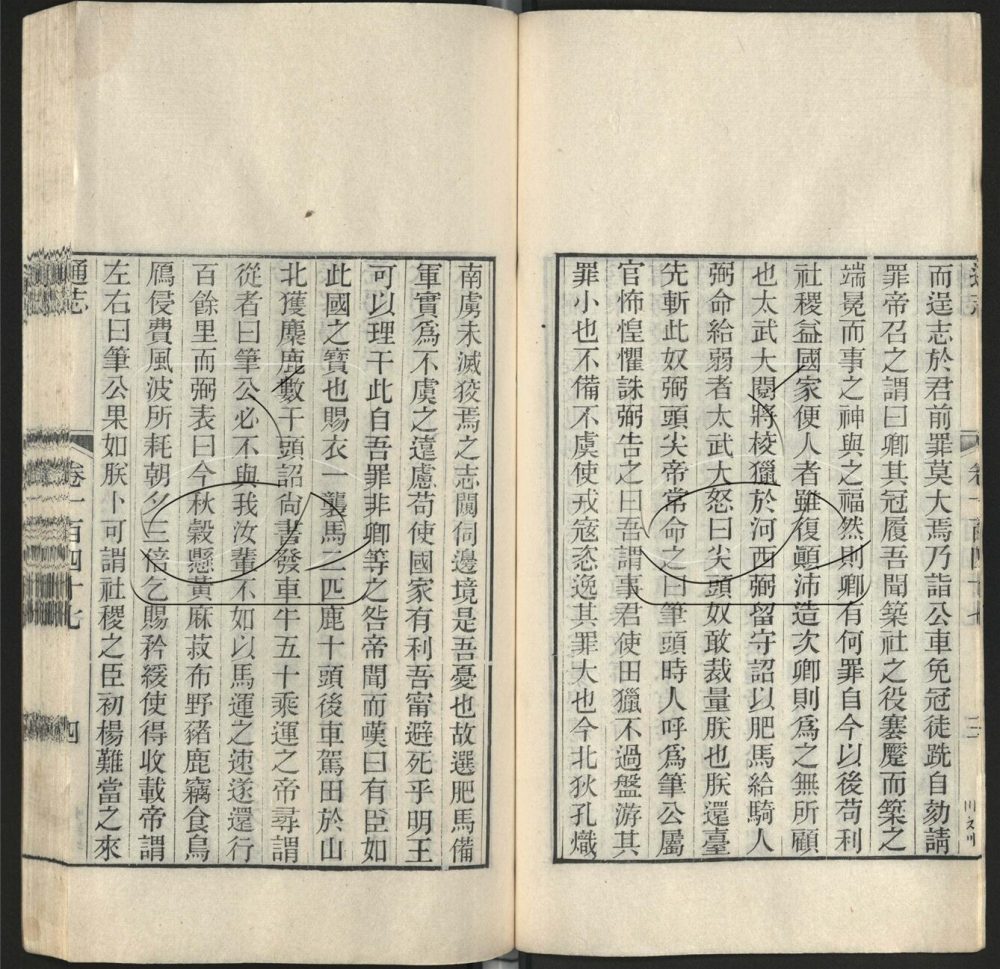 而逞志於君前罪莫大焉乃詣公車免冠徒跣自劾請
罪帝召之謂曰卿其冠履吾聞築社之役蹇蹷而築之
端冕而事之神與之福然則卿有何罪自今以後苟利
社稷益國家便人者雖復顚沛造次卿則爲之無所顧
也太武大閱將校獵於河西弼留守詔以肥馬給騎人
弼命給弱者太武大怒曰尖頭奴敢裁量朕也朕還臺
先斬此奴弼頭尖帝常命之曰筆頭時人呼爲筆公屬
官怖惶懼誅弼告之曰吾謂事君使田獵不過盤游其
罪小也不備不虞使戎寇恣逸其罪大也今北狄孔熾
南虜未滅狡焉之志闚伺邊境是吾憂也故選肥馬備
軍實爲不虞之遠慮苟使國家有利吾甯避死乎明王
可以理干此自吾罪非卿等之咎帝聞而嘆曰有臣如
此國之寶也賜衣一襲馬二匹鹿十頭後車駕田於山
北獲麋鹿數千頭詔尙書發車牛五十乘運之帝尋謂
從者曰筆公必不與我汝輩不如以馬運之速遂還行
百餘里而弼表曰今秋穀懸黃麻菽布野豬鹿竊食鳥
鴈侵費風波所耗朝夕三倍乞賜矜緩使得收載帝謂
左右曰筆公果如朕卜可謂社稷之臣初楊難當之來
通志
卷一百四十七
四